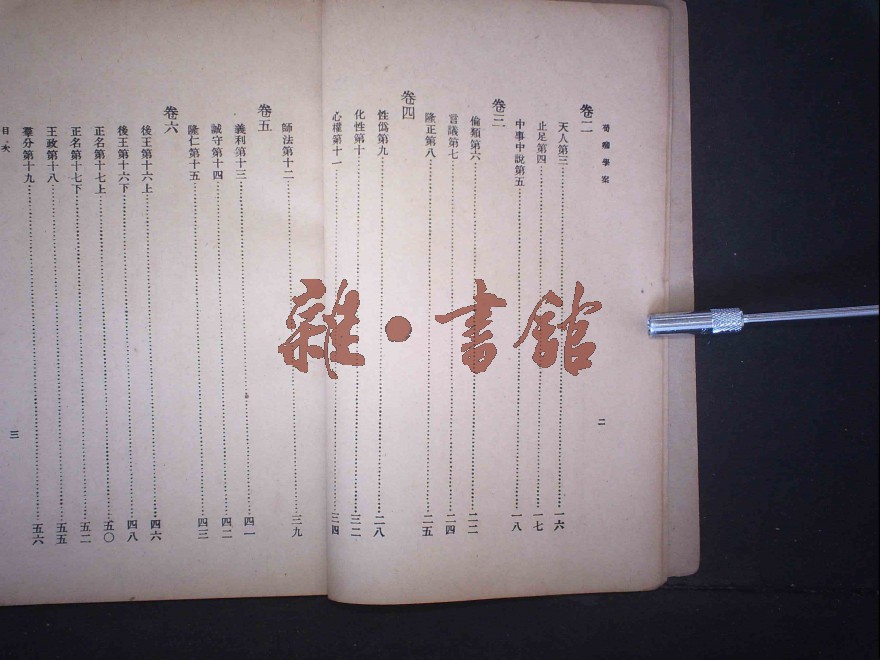 荀嘯學案
卷二
天人第三……一六
止足第四……一七
中事中說第五……一八
卷三
倫類第六……二二
言議第七……二四
隆正第八……二五
卷四
性僞第九……二八
化性第十……三二
心權第十一……三四
二
師法第十二……三九
卷五
義利第十三……四一
誠守第十四……四二
隆仁第十五……四三
卷六
後王第十六上……四六
後王第十六下……四八
正名第十七上……五〇
正名第十七下……五二
王政第十八……五五
羣分第十九……五六
目次
三
雜·書館